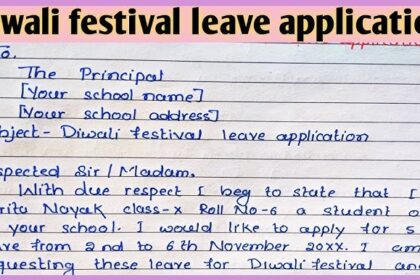 wali festival leave applicatio
o.
The Principal
[Your school name]
[Your school address]
bject- Diwali festival leave application
spected Sir / Madam.
With due respect I beg to state that I
rita Nayak class-x Roll No-6 a student o
your school. I would like to apply for 5
ave from 2nd to 6th November 20xx. I am
questing these leave for Diwali festival an